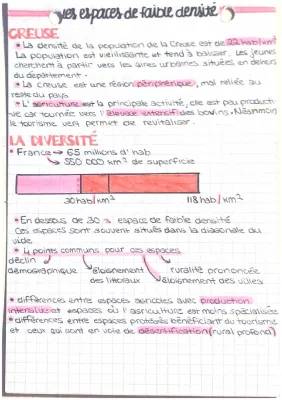 les espaces de faible densité
CREUSE
• La densité de la population de la Creuse est de 22 hab/km²
La population est vieillissante et tend à baisser. Les jeunes
cherchent à partir vers les aires urbaines situées en dehors
du département.
• La Creuse est une région périphérique, mal reliée au
reste du pays
• L'agriculture est la principale activité, elle est peu producti-
ve car tournée vers l'élevage extensif des bovins. Néanmoin
le tourisme vert permet de revitaliser.
LA DIVERSITÉ
• France → 65 millions d'hab
→ 550 000 km² de superficie
30 hab/km² 118 hab/km²
• En dessous de 30 → espace de faible densité
Ces espaces sont souvent situés dans la diagonale du
vide
• 4 points communs pour ces espaces
déclin
démographique éloignement ruralité prononcée
des littoraux éloignement des villes
• différences entre espaces agricoles avec production
intensive et espaces où l'agriculture est moins spécialisée
• différences entre espaces protégés bénéficiant du tourisme
et ceux qui sont en voie de désertification (rural profond)